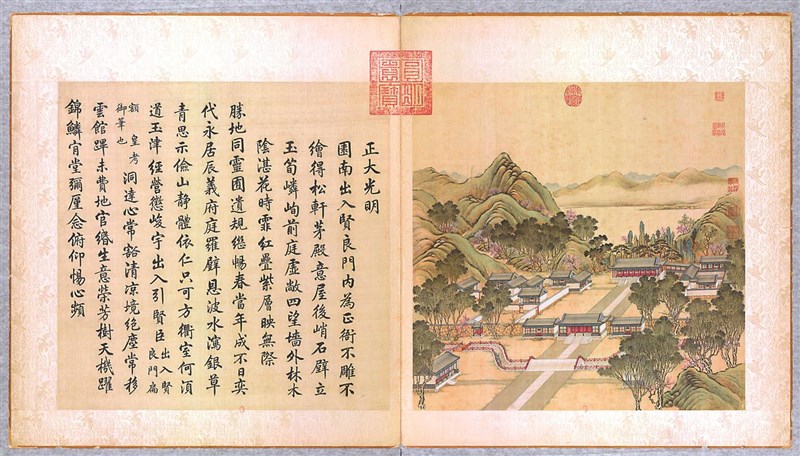 圓明園寶
正大光明
園南出入賢良門內為正衙不雕不
繪得松軒茅殿意屋後峭石壁立
玉筍嶙峋前庭虛敞四望墻外林木
陰湛花時霏紅疊紫層映無際
勝地同靈囿遺規繼暢春當年成不日奕
代永居辰義府庭羅璧恩波水瀉銀草
青思示儉山靜體依仁只可方衢室何須
道玉津經營懲峻宇出入引賢臣出入賢良門扁
額皇考御筆也洞達心常豁清涼境絕塵常移
雲館蹕未費地官緡生意榮芳樹天機躍
錦鱗肯堂彌厪念俯仰惕心頻